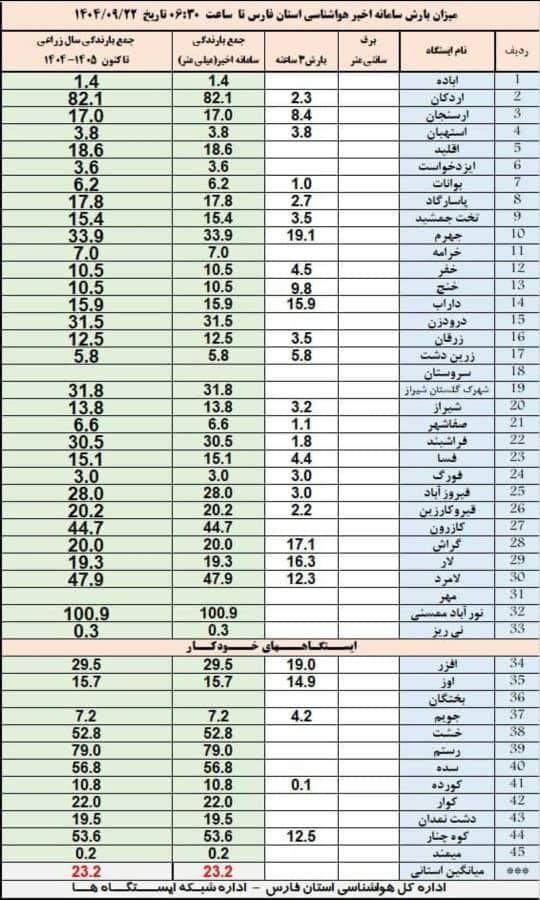 میزان بارش سامانه اخیر هواشناسی استان فارس تا ساعت ۰۶:۳۰ تاریخ ۱۴۰۴/۰۹/۲۲
ردیف نام ایستگاه برف سانتی‌متر بارش ۳ ساعته جمع بارندگی سامانه اخیر(میلی متر) جمع بارندگی سال زراعی تاکنون ۱۴۰۵-۱۴۰۴
1 اباده 1.4 1.4
2 اردکان 2.3 82.1 82.1
3 ارسنجان 8.4 17.0 17.0
4 استهبان 3.8 3.8 3.8
5 اقلید 18.6 18.6
6 ایزدخواست 3.6 3.6
7 بوانات 1.0 6.2 6.2
8 پاسارگاد 2.7 17.8 17.8
9 تخت جمشید 3.5 15.4 15.4
10 جهرم 19.1 33.9 33.9
11 خرامه 7.0 7.0
12 خفر 4.5 10.5 10.5
13 خنج 9.8 10.5 10.5
14 داراب 15.9 15.9 15.9
15 درودزن 31.5 31.5
16 زرقان 3.5 12.5 12.5
17 زرین دشت 5.8 5.8 5.8
18 سروستان
19 شهرک گلستان شیراز 31.8 31.8
20 شیراز 3.2 13.8 13.8
21 صفاشهر 1.1 6.6 6.6
22 فراشبند 1.8 30.5 30.5
23 فسا 4.4 15.1 15.1
24 فورگ 3.0 3.0 3.0
25 فیروزآباد 3.0 28.0 28.0
26 قیروکارزین 2.2 20.2 20.2
27 کازرون 44.7 44.7
28 گراش 17.1 20.0 20.0
29 لار 16.3 19.3 19.3
30 لامرد 12.3 47.9 47.9
31 مهر
32 نورآباد ممسنی 100.9 100.9
33 نی ریز 0.3 0.3
ایستگاههای خودکار
34 افزر 19.0 29.5 29.5
35 اوز 14.9 15.7 15.7
36 بختگان
37 جویم 4.2 7.2 7.2
38 خشت 52.8 52.8
39 رستم 79.0 79.0
40 سده 56.8 56.8
41 کورده 0.1 10.8 10.8
42 کوار 22.0 22.0
43 دشت نمدان 19.5 19.5
44 کوه چنار 12.5 53.6 53.6
45 میمند 0.2 0.2
*** میانگین استانی 23.2 23.2
اداره کل هواشناسی استان فارس - اداره شبکه ایستگاه ها